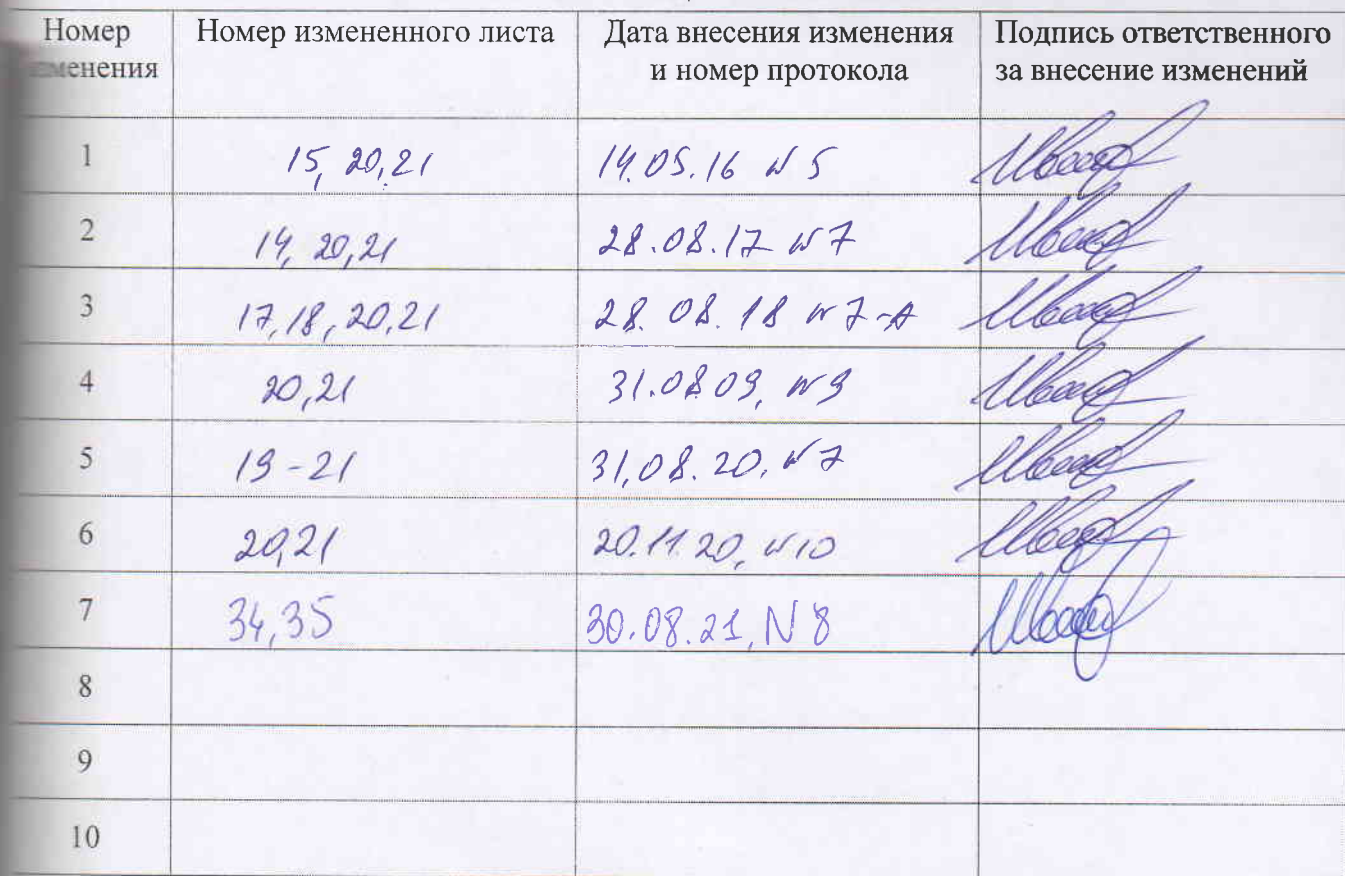 Номер изменения Номер измененного листа Дата внесения изменения и номер протокола Подпись ответственного за внесение изменений
1 15, 20,21 14.05.16 N 5
2 14, 20,21 28.08.17 N 7
3 17,18,20,21 28.08.18 N 7-А
4 20,21 31.08.09, N 9
5 19-21 31.08.20, N 7
6 20,21 20.11.20, N10
7 34,35 30.08.21, N 8
8
9
10